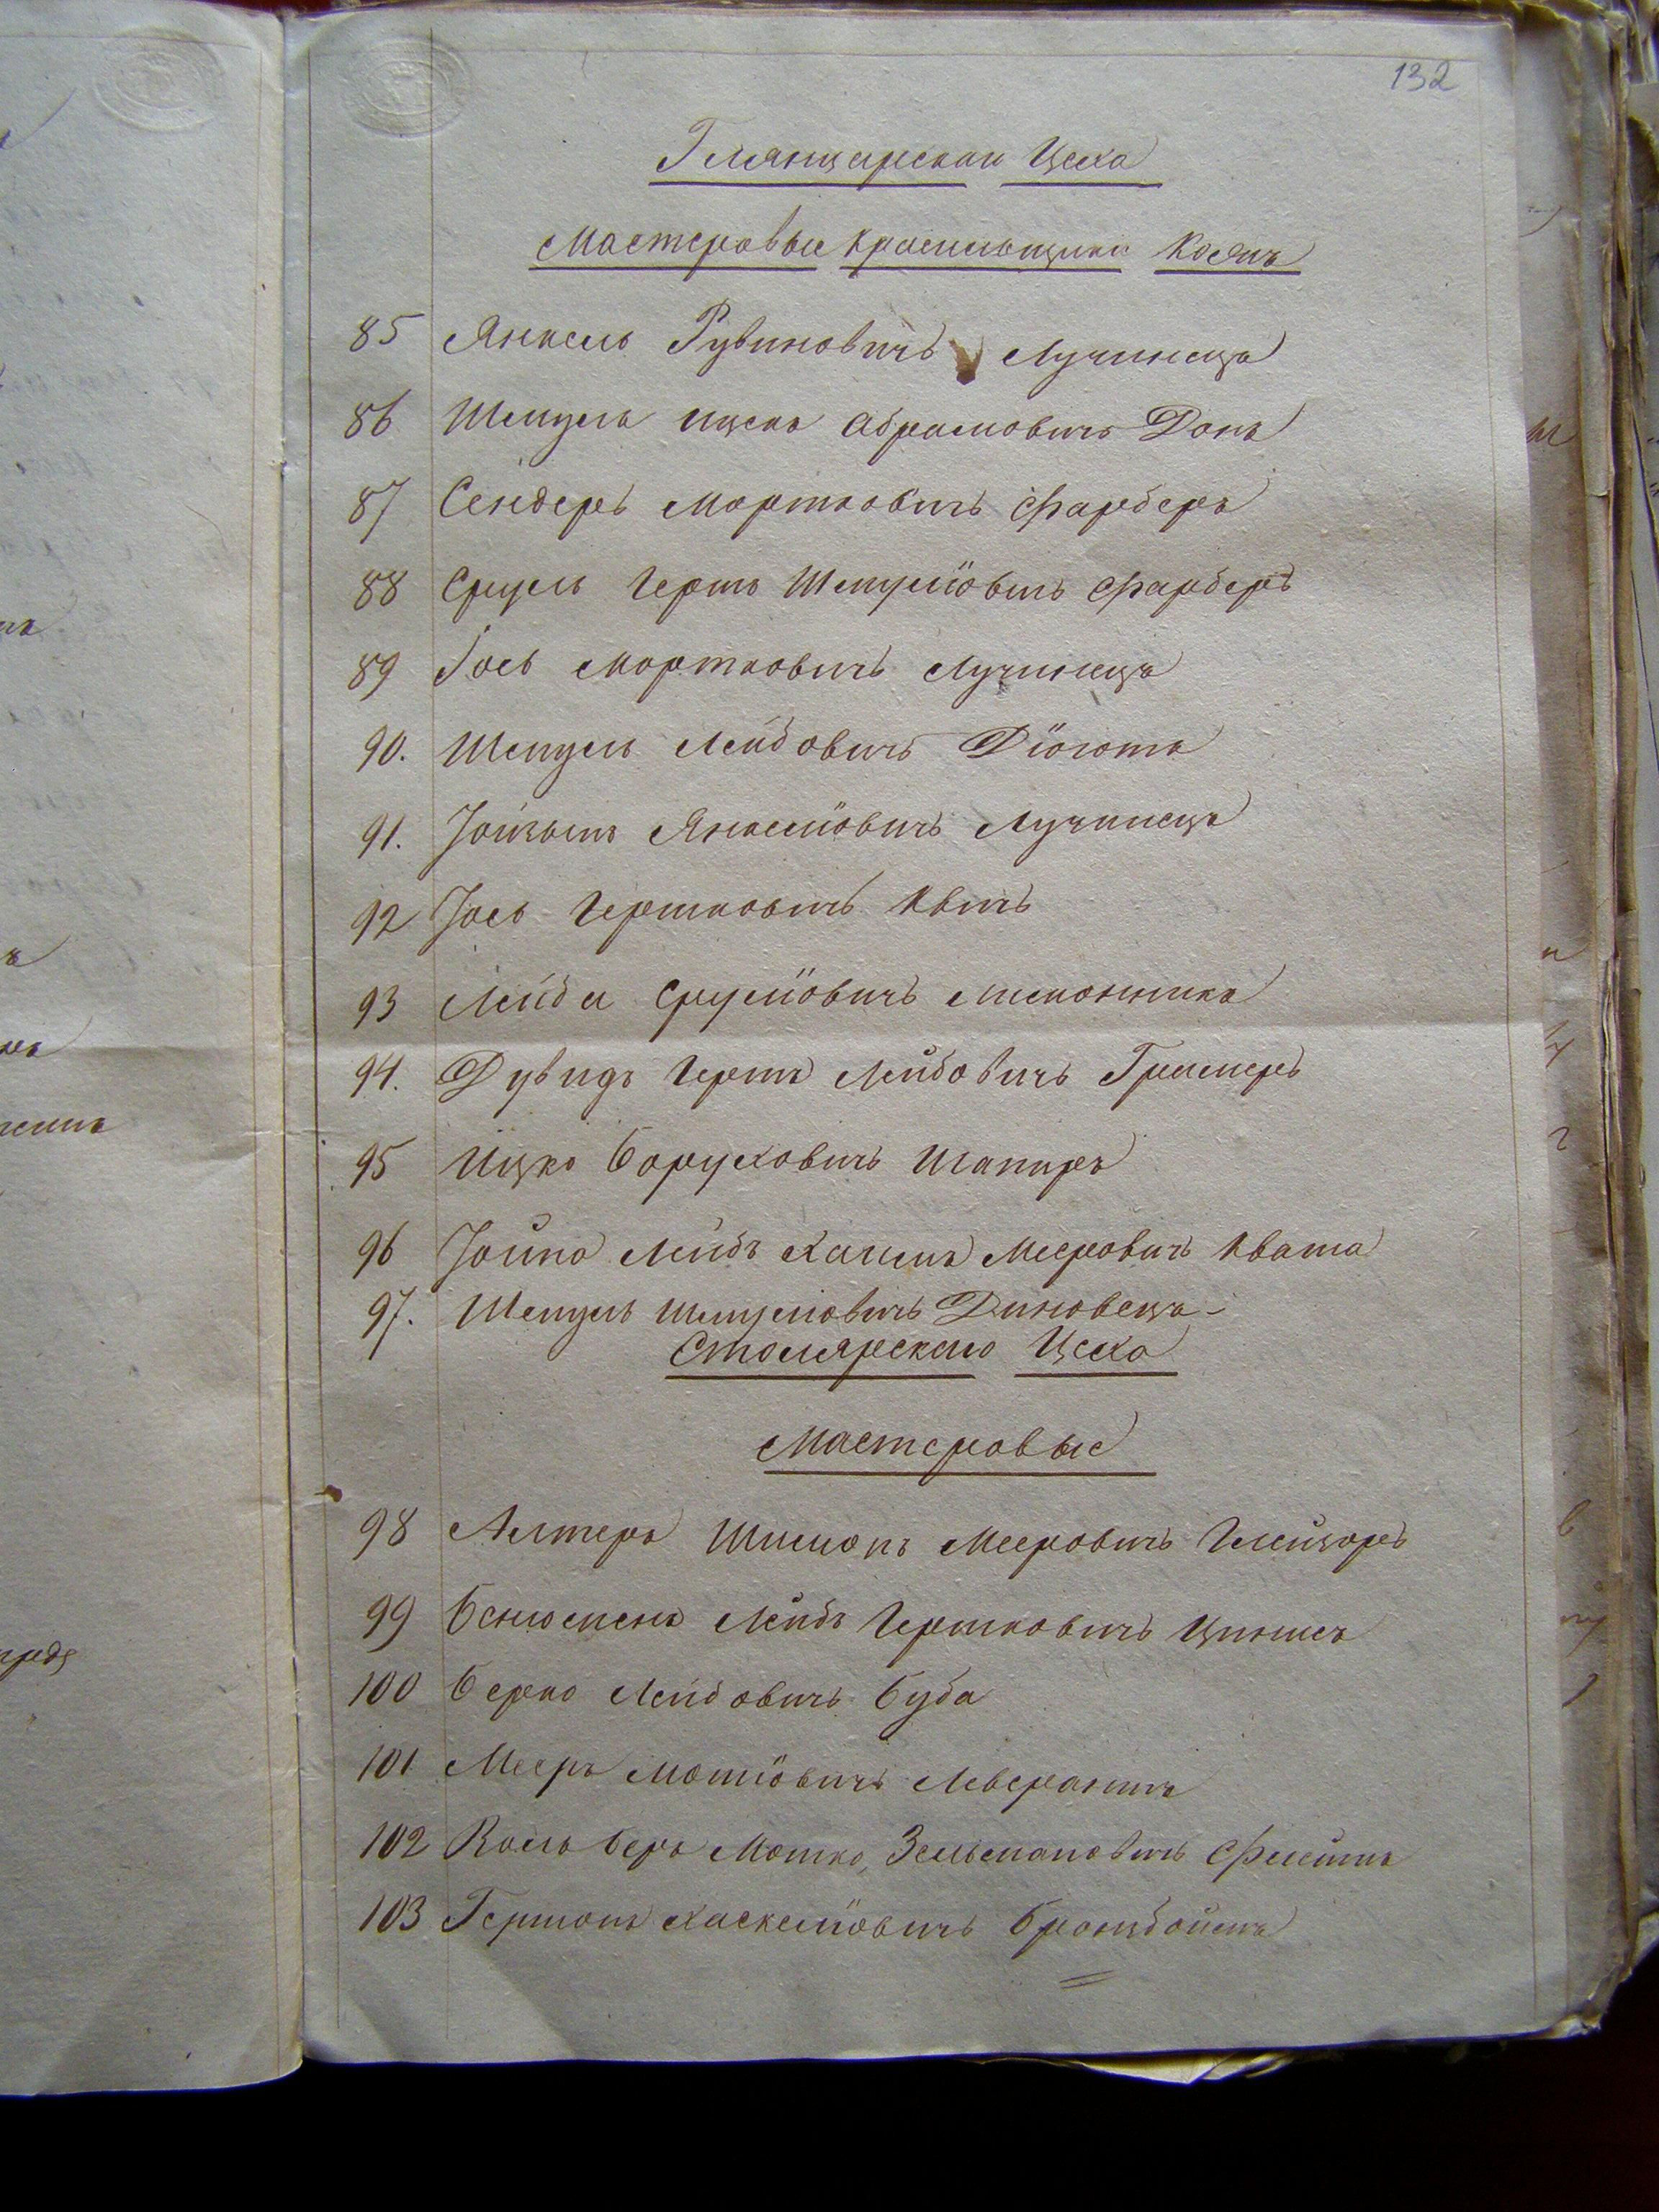 132
Глянцарскаи Цеха
Мастеровые красильщики Кожъ
85 Янкель Рувиновичъ Лучинецъ
86 Шмуль Ицекъ Абрамовичъ Донъ
87 Сендеръ Мортковичъ Фарберъ
88 Сруль Гершъ Шмулiовичъ Фарберъ
89 Іось Мортковичъ Лучинецъ
90. Шмуль Лейбовичъ
91. Янкелiовичъ Лучинецъ
92 Іось Гершковичъ Квитъ
93 Лейба Срулiовичъ
94. Дувидъ Гершъ Лейбовичъ
95 Ицко Боруховичъ Шапиръ
96 Іойна Лейбъ Хаимъ Мееровичъ Квата
97. Шмуль Шмулiовичъ Диновецъ
Столярскаго Цеха
Мастеровые
98 Алтеръ Шимонъ Мееровичъ Глейзаръ
99 Бенюменъ Лейбъ Гершковичъ
100 Берко Лейбовичъ Буба
101 Мееръ Мотiовичъ
102 Беръ Мошко Зельмановичъ
103 Гершонъ Хаскелiовичъ